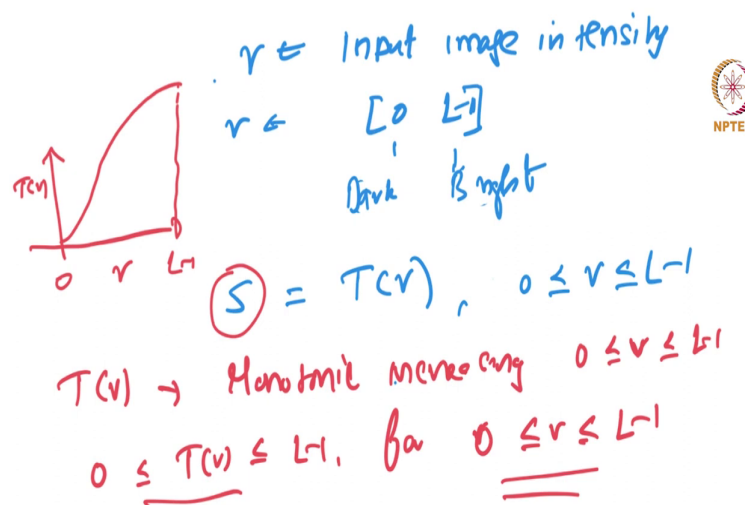 r ← Input image intensity
r ← [0 L-1]
NPTE
Dark Bright
T(r)
0 r L-1
S = T(r), 0 ≤ r ≤ L-1
T(r) → Monotonic increasing 0 ≤ r ≤ L-1
0 ≤ T(r) ≤ L-1, for 0 ≤ r ≤ L-1